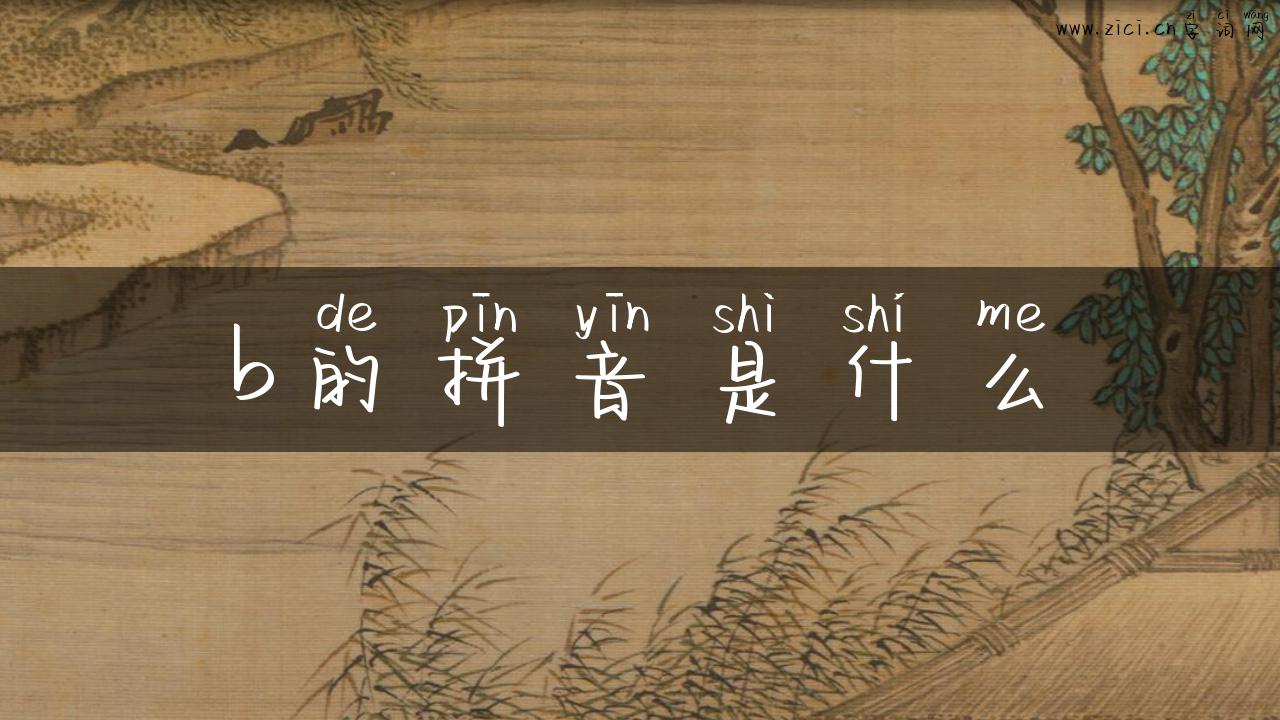 zì cí wǎng
www.zici.cn字词网
de pīn yīn shì shí me
b的拼音是什么